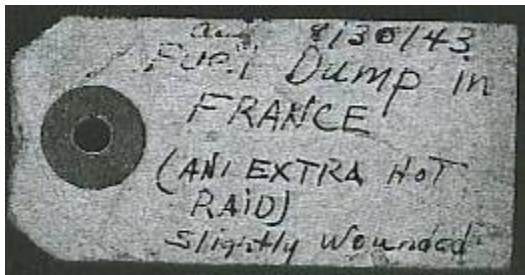 aug 8/30/43
Fuel Dump in
FRANCE
(AN EXTRA HOT
RAID)
Slightly Wounded